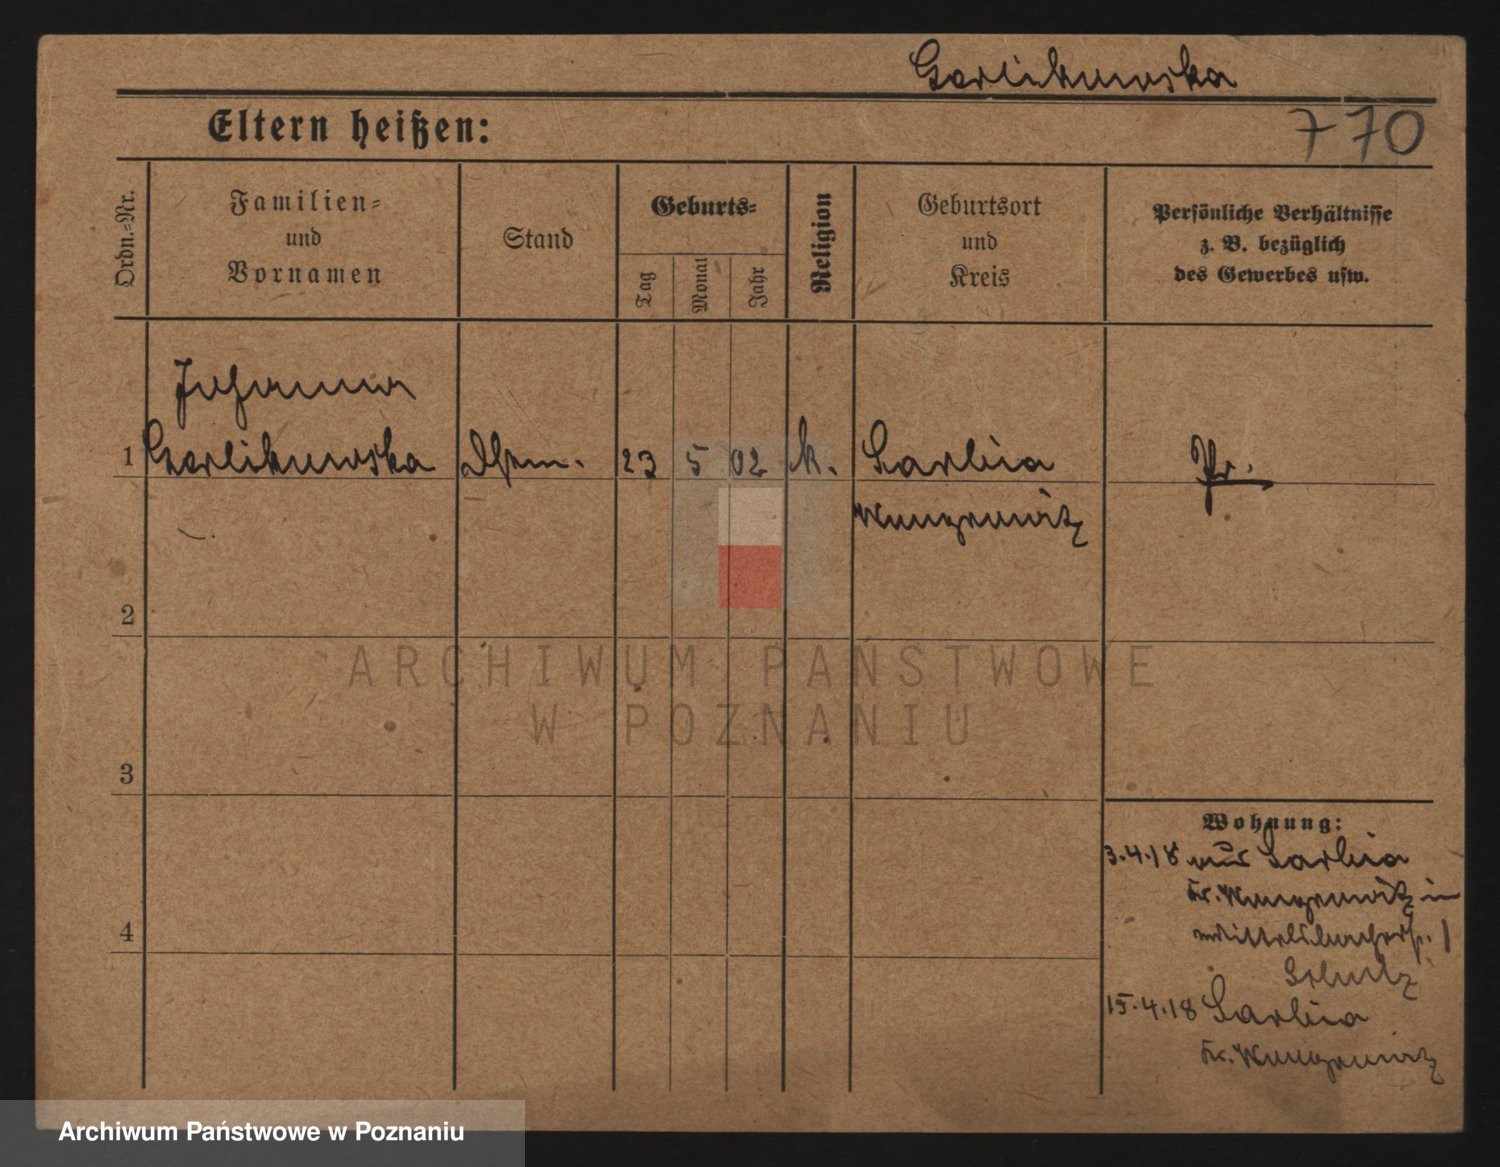 Gorlikowska
770
Eltern heißen:
Ordn.-Nr.
Familien-
und
Vornamen
Stand
Geburts-
Tag
Monat
Jahr
Religion
Geburtsort
und
Kreis
Persönliche Verhältnisse
z. B. bezüglich
des Gewerbes usw.
Johanna
1 Gorlikowska Dhem. 23 5 02 k. Sarbia Pr.
Wongrowitz
2
ARCHIWUM PANSTWOWE
W POZNANIU
3
Wohnung:
3.4.18 aus Sarbia
Kr. Wongrowitz in
4
Schulz
15.4.18 Sarbia
Kr. Wongrowitz
Archiwum Państwowe w Poznaniu